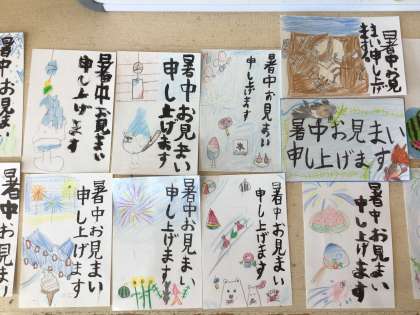 暑中
暑中お見まい
申し上げます
暑中お見まい
申し上げます
暑中お見まい
申し上げます
氷
暑中お見
まい申し上
げます
暑中お見まい
申し上げます
暑中
暑中お見まい
申し上げます
暑中お見まい
申し上げます
暑中お見まい
申し上げます
暑中お見まい
申し上げます